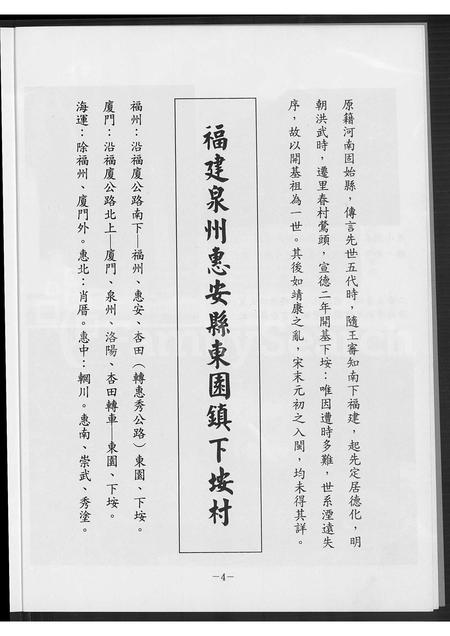 原籍河南固始縣，傳言先世五代時，隨王審知南下福建，起先定居德化，明
朝洪武時，遷里春村鶯頭，宣德二年開基下垵：唯因遭時多難，世系湮遠失
序，故以開基祖為一世。其後如靖康之亂，宋末元初之入閩，均未得其詳。
福建泉州惠安縣東園鎮下垵村
福州：沿福廈公路南下—福州、惠安、杏田（轉惠秀公路）東園、下垵。
廈門：沿福廈公路北上—廈門、泉州、洛陽、杏田轉車 東園、下垵。
海運：除福州、廈門外。惠北：肖厝。惠中：輞川。惠南、崇武、秀塗。
－4－